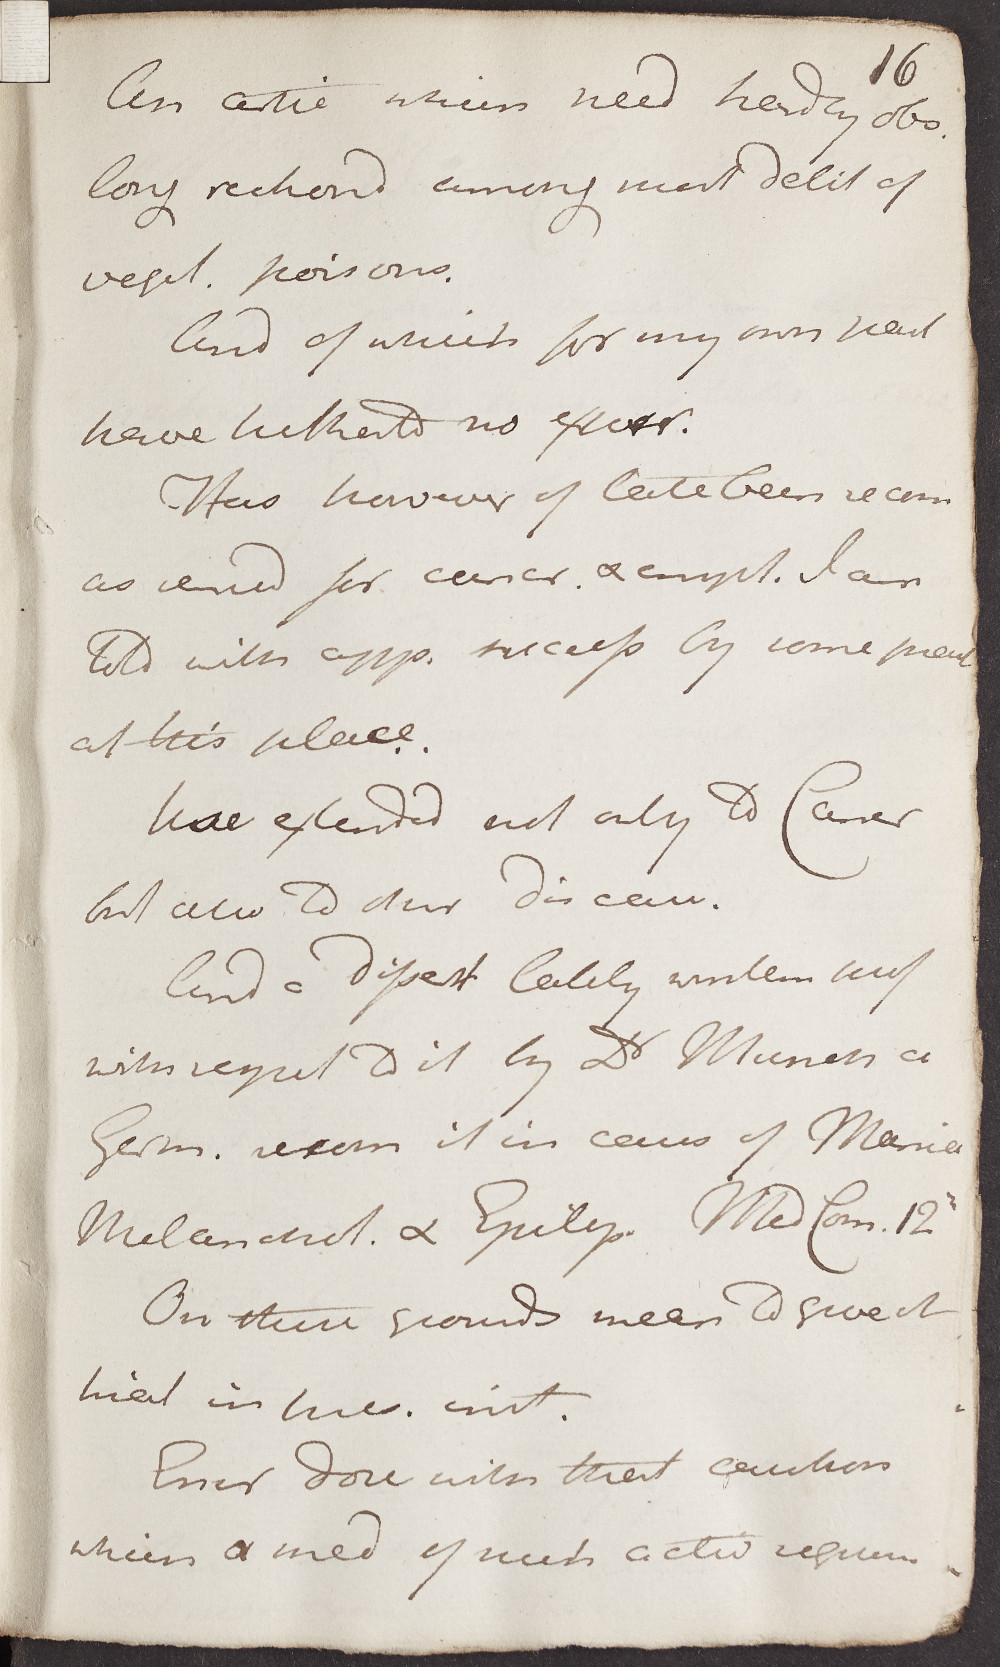 16
An artic which need hardly obs.
long reckond among most delet of
veget. poisons.
And of which for my own part
have hitherto no exper.
Has however of late been recom
as remed for cancer. & I am
told with app. success by some pract
at this place.
have extended not only to Cancer
but also to other diseases.
And a dissert lately written
with respect to it by Dr Munch a
Germ. recom it in cases of Mania
Melanchol. & Epilep. Med Com. 12
On these grounds mean to give it
trial in pres. inst.
Ever done with that caution
which a med of such activ requires